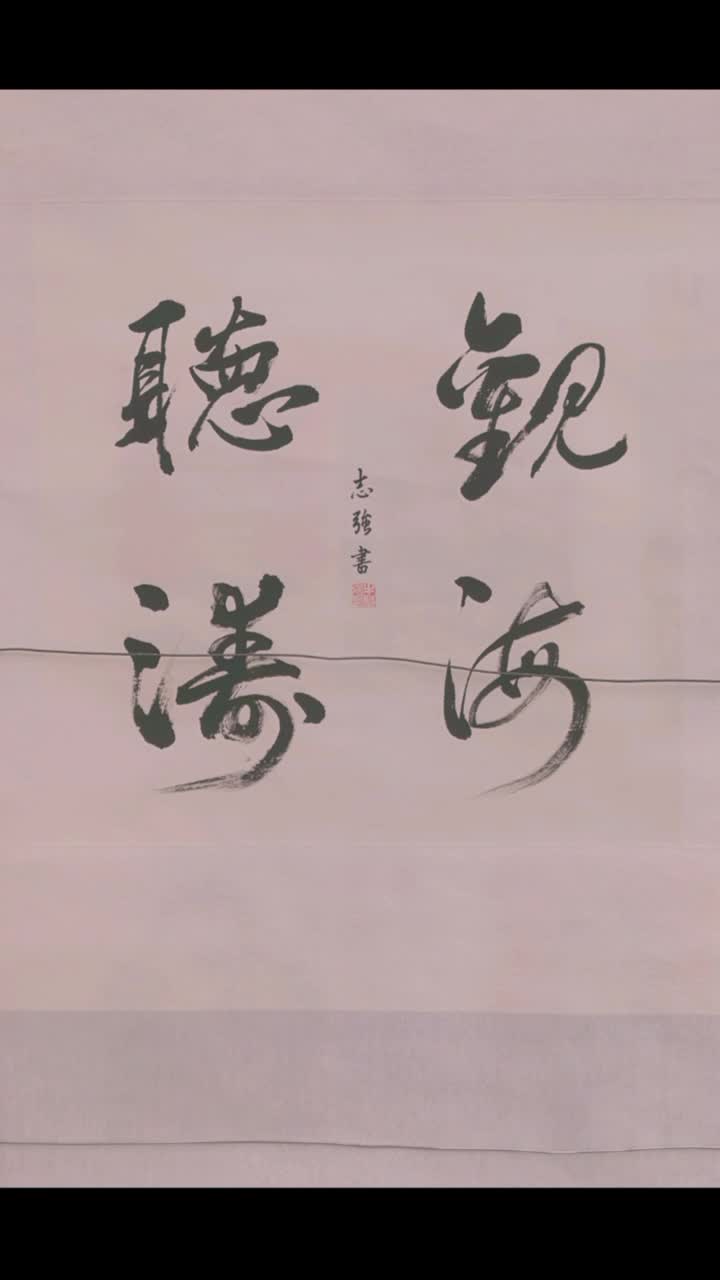 觀海
聽濤
志強書